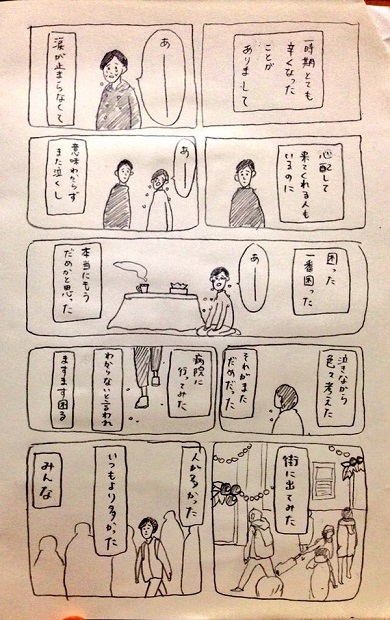 一時期とても
辛くなった
ことが
ありまして
あーーー
涙が止まらなくて
心配して
来てくれる人も
いるのに
あーー
意味わからず
また泣くし
困った
一番困った
あーー
本当にもう
だめかと思った
泣きながら
色々考えた
それがまた
だめだった
病院に
行ってみた
わからないと言われ
ますます困る
街に出てみた
人が多かった
いつもより多かった
みんな